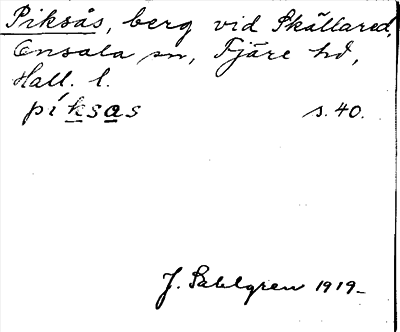 Piksås, berg vid Skällared,
Onsala sn, Fjäre hd,
Hall. l.
píksas s. 40.
J. Sahlgren 1919